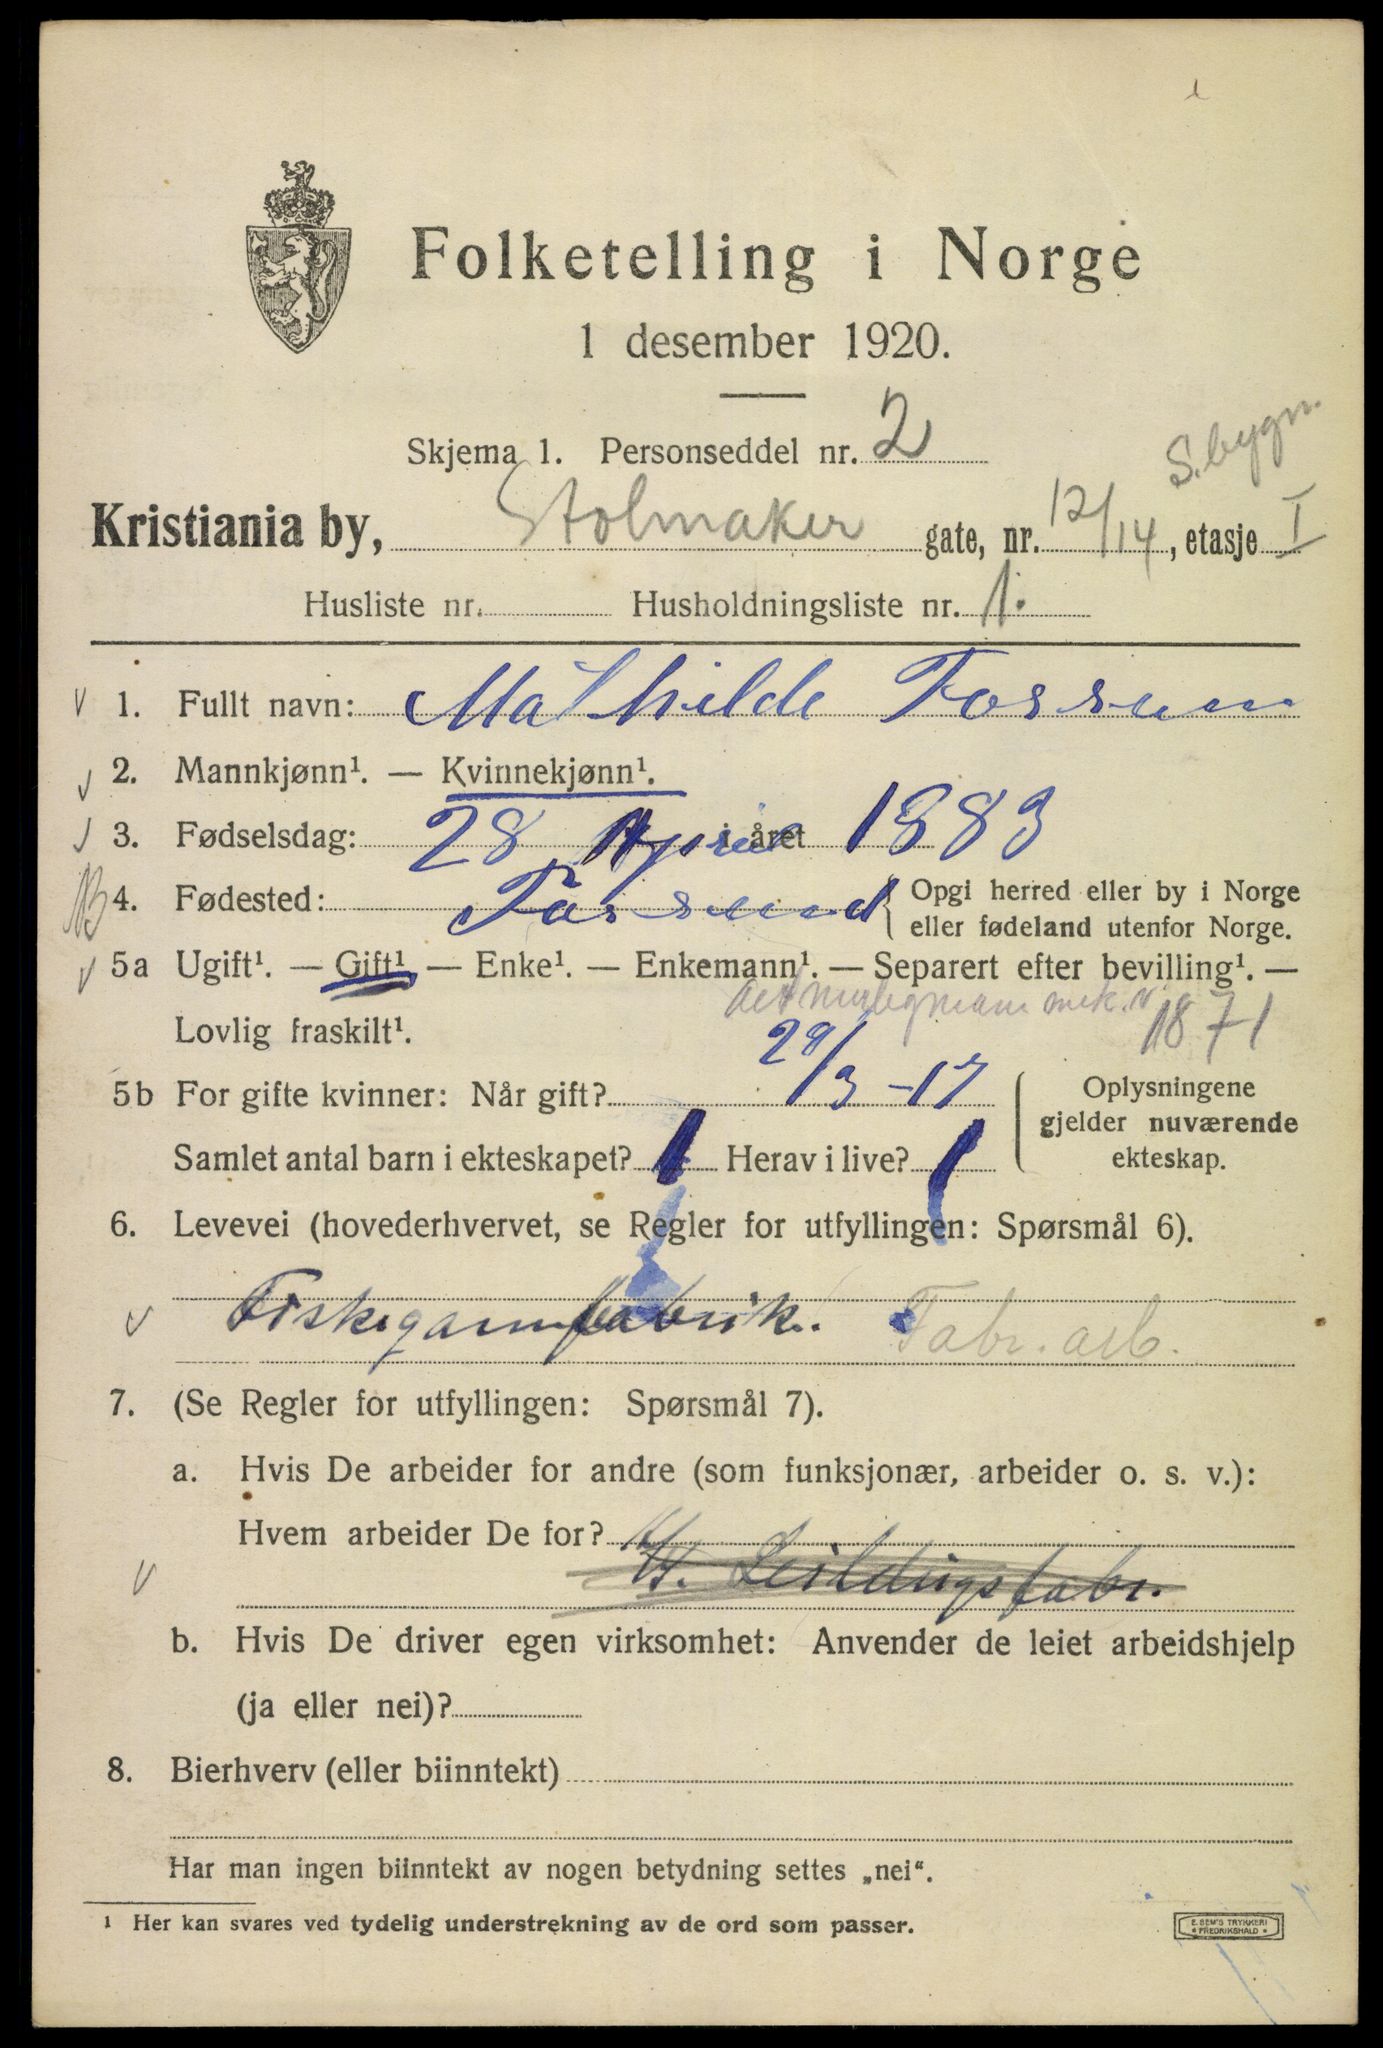 Folketelling i Norge
1 desember 1920.
Skjema 1. Personseddel nr. 2
S. bygn.
Kristiania by, Stolmaker gate, nr. 12/14, etasje I
Husliste nr. Husholdningsliste nr. 1.
1. Fullt navn: Mathilde Fossum
2. Mannkjønn¹. — Kvinnekjønn¹.
3. Fødselsdag: 28 April i året 1883
4. Fødested: Fossund { Opgi herred eller by i Norge
eller fødeland utenfor Norge.
5a Ugift¹. — Gift¹ — Enke¹. — Enkemann¹. — Separert efter bevilling¹. —
1871
Lovlig fraskilt¹.
5b For gifte kvinner: Når gift? 29/3 -17
Oplysningene
gjelder nuværende
ekteskap.
Samlet antal barn i ekteskapet? 1 Herav i live? 1
6. Levevei (hovederhvervet, se Regler for utfyllingen: Spørsmål 6).
Fiskegarnfabrik. Fabr. arb.
7. (Se Regler for utfyllingen: Spørsmål 7).
a. Hvis De arbeider for andre (som funksjonær, arbeider o. s. v.):
Hvem arbeider De for?
b. Hvis De driver egen virksomhet: Anvender de leiet arbeidshjelp
(ja eller nei)?
8. Bierhverv (eller biinntekt)
Har man ingen biinntekt av nogen betydning settes „nei“.
¹ Her kan svares ved tydelig understrekning av de ord som passer.
E. SEM'S TRYKKERI
FREDRIKSHALD